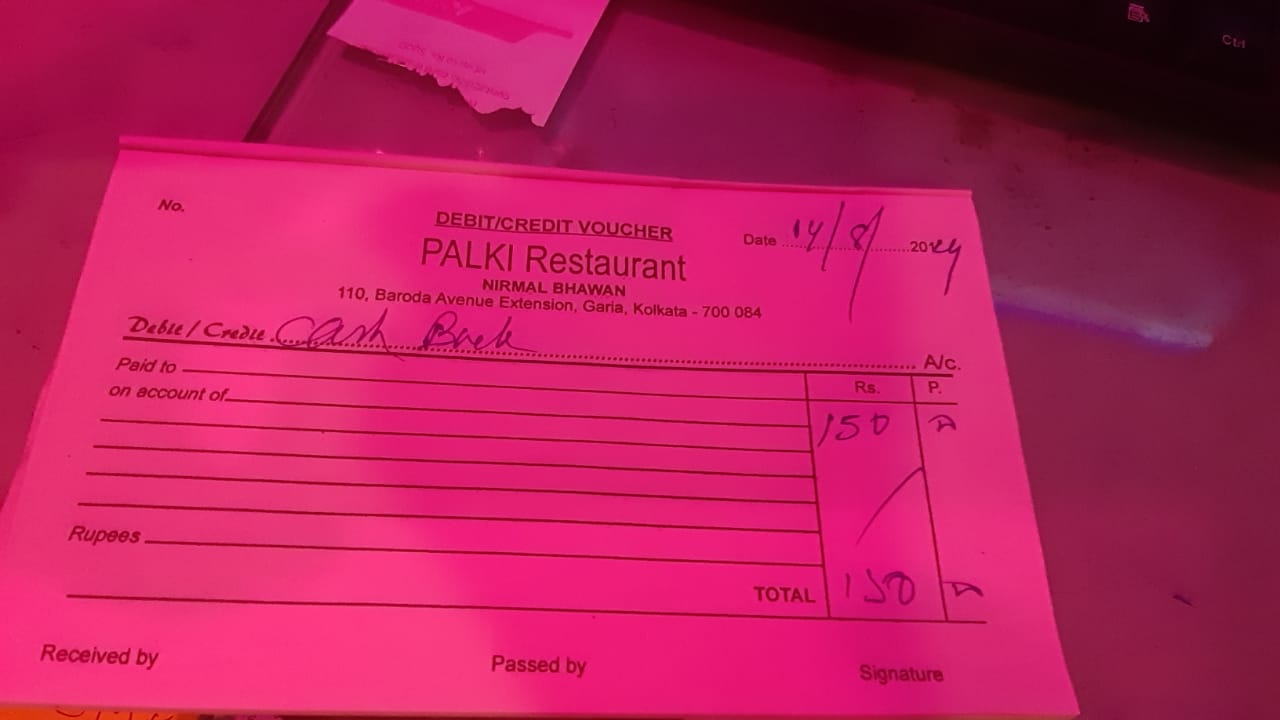 Ctrl
No.
DEBIT/CREDIT VOUCHER
PALKI Restaurant
NIRMAL BHAWAN
110, Baroda Avenue Extension, Garia, Kolkata - 700 084
Date 14/8/2024
Debit / Credit Cash Back A/c.
Paid to
Rs. P.
on account of
150
Rupees
TOTAL 150
Received by Passed by Signature